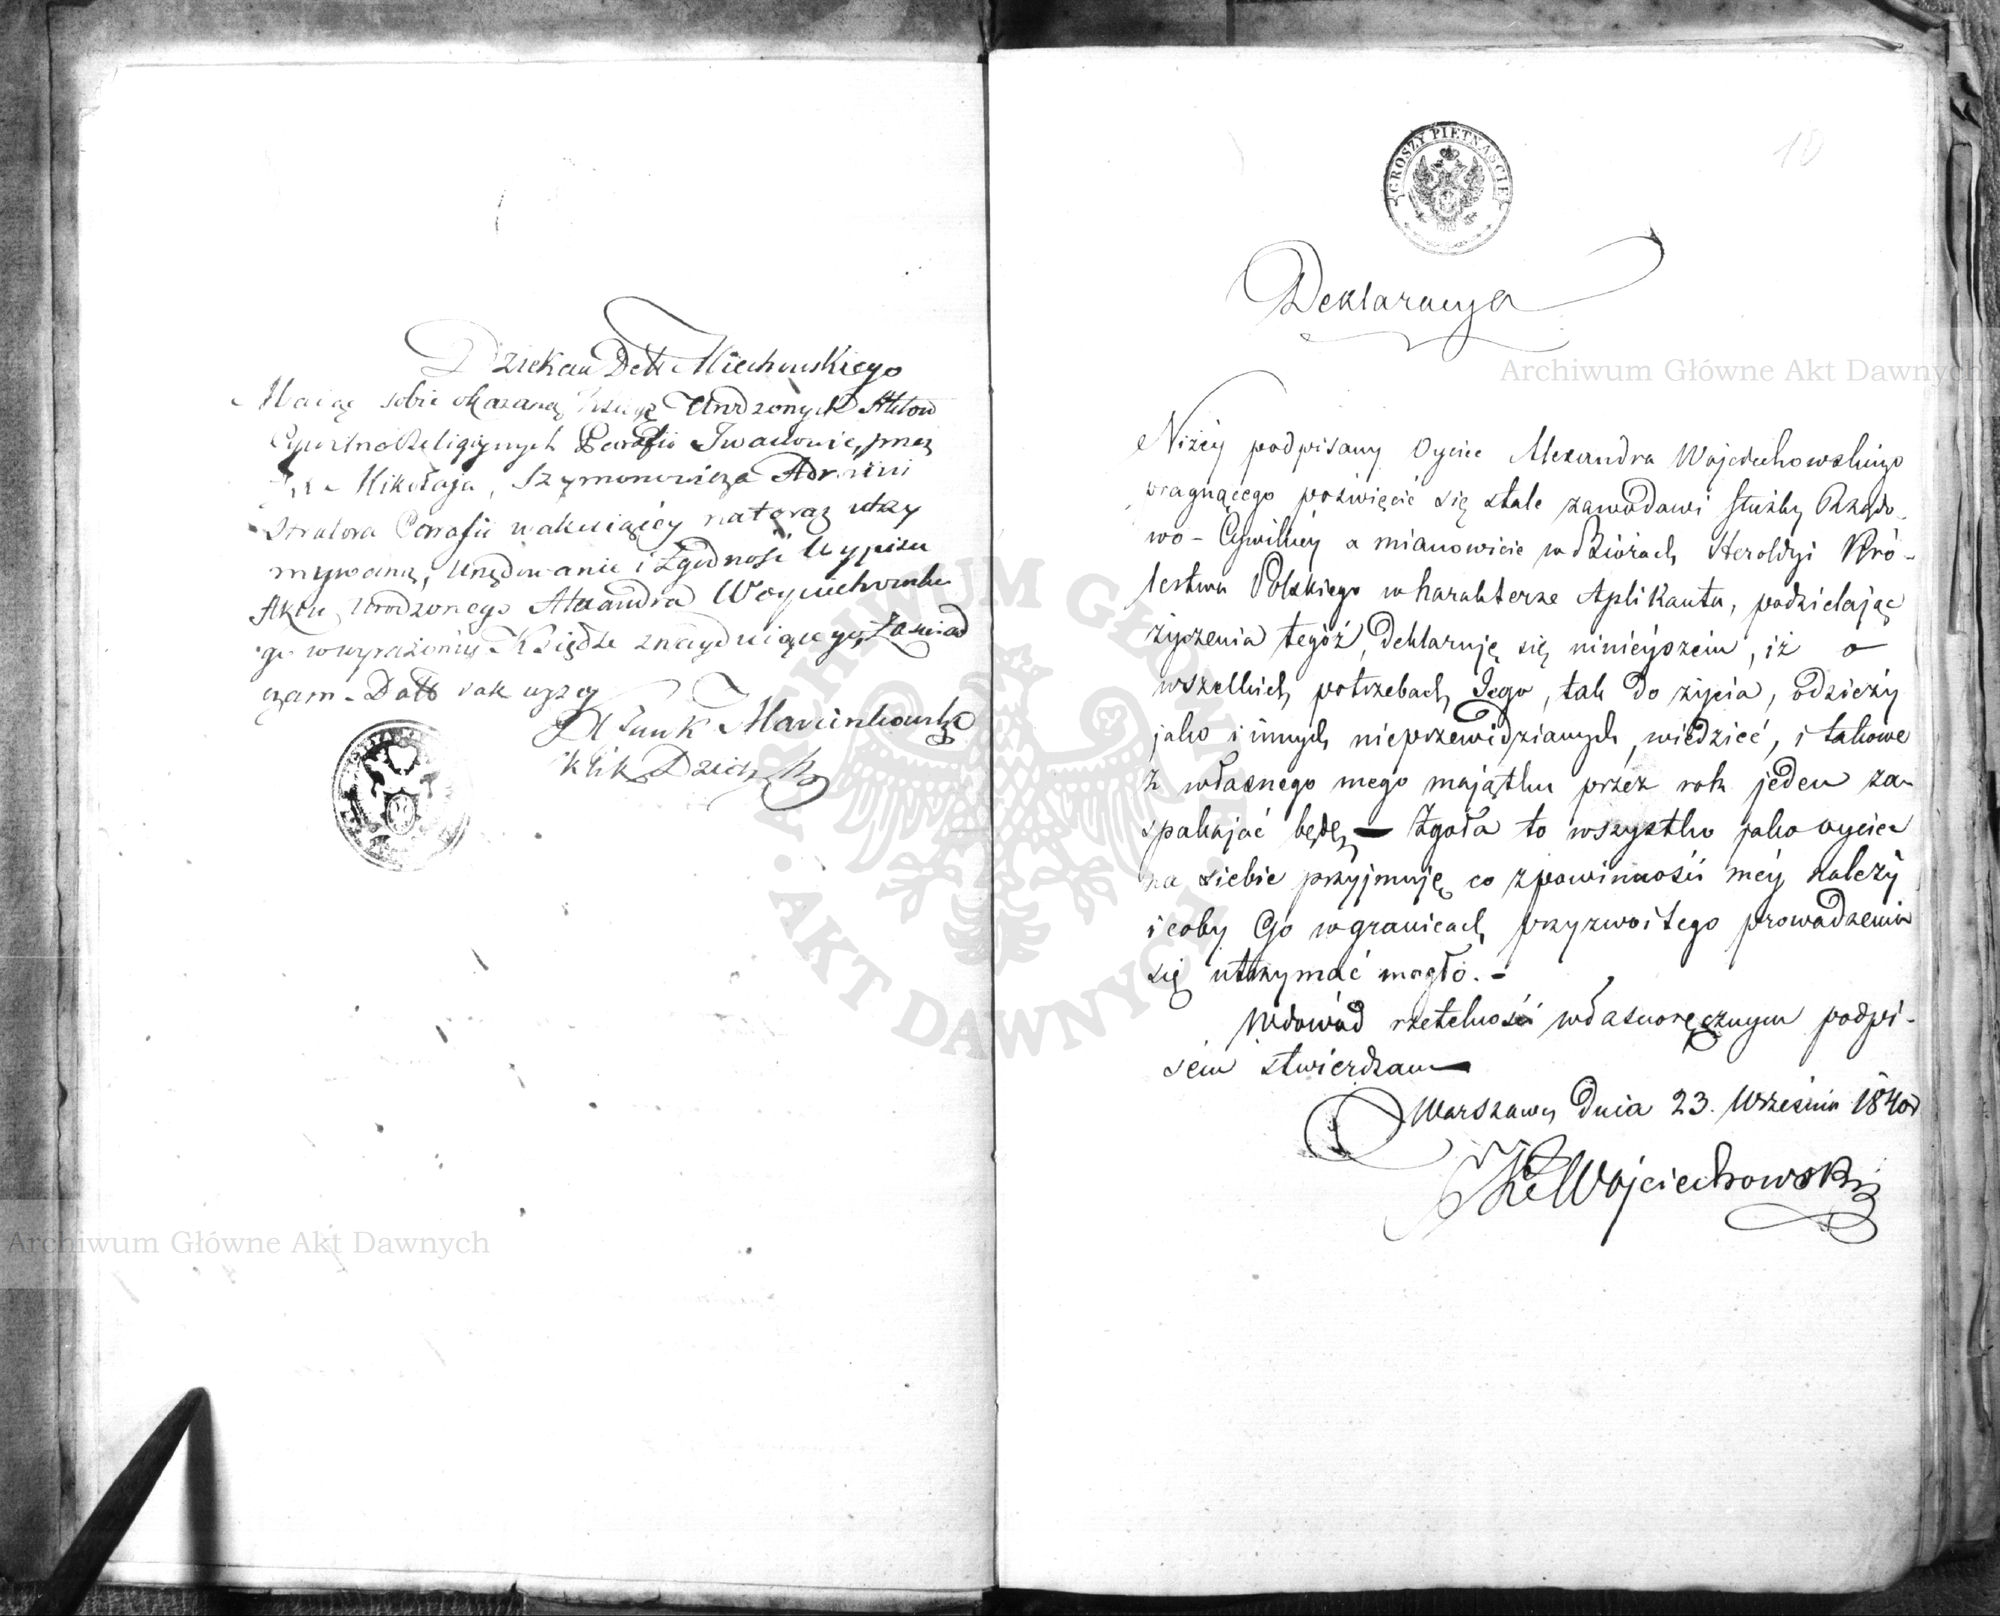 Dziekan Dektt Miechowskiego
Maiąc sobie okazaną Księgę Urodzonych Aktow
Cywilno Religiynych Parafii Iwanowic, przez
Mikołaja Szymonowicza Admini
stratora Parafii wakuiącey na teraz utrzy
mywaną, Urzędowanie i Zgodność Wypisu
Aktu Urodzonego Alexandra Woyciechowskie
go w wyrażoney Księdze znayduiącego, Zaswiad
czam - Datt jak wyzey
X Funk Marcinkowski
GROSZY PIĘTNAŚCIE
10
Deklaracya
Niżéy podpisany Oyciec Alexandra Wojciechowskiego
pragnącego poświęcić się stale zawodowi służby Rządo-
wo-Cywilnéy a mianowicie w Biórach Heroldyi Kró-
lestwa Polskiego w harakterze Aplikanta, podzielając
życzenia tegóż, deklaruję się ninieyszem, iż o
wszelkich potrzebach Jego, tak do życia, odzieży
jako i innych nieprzewidzianych, wiedzieć, i takowe
z własnego mego majątku przez rok jeden za-
spakajać będę - Zgoła to wszystko jako oyciec
na siebie przyjmuję co z powinności méy należy
i coby Go w granicach przyzwoitego prowadzenia
się utrzymać mogło. -
W dowód rzetelności własnoręcznym podpi-
sem stwierdzam
Warszawa dnia 23. Września 1840 r
Wojciechowski
Archiwum Główne Akt Dawnych
Archiwum Główne Akt Dawnych
ARCHIWUM GŁÓWNE · AKT DAWNYCH ·